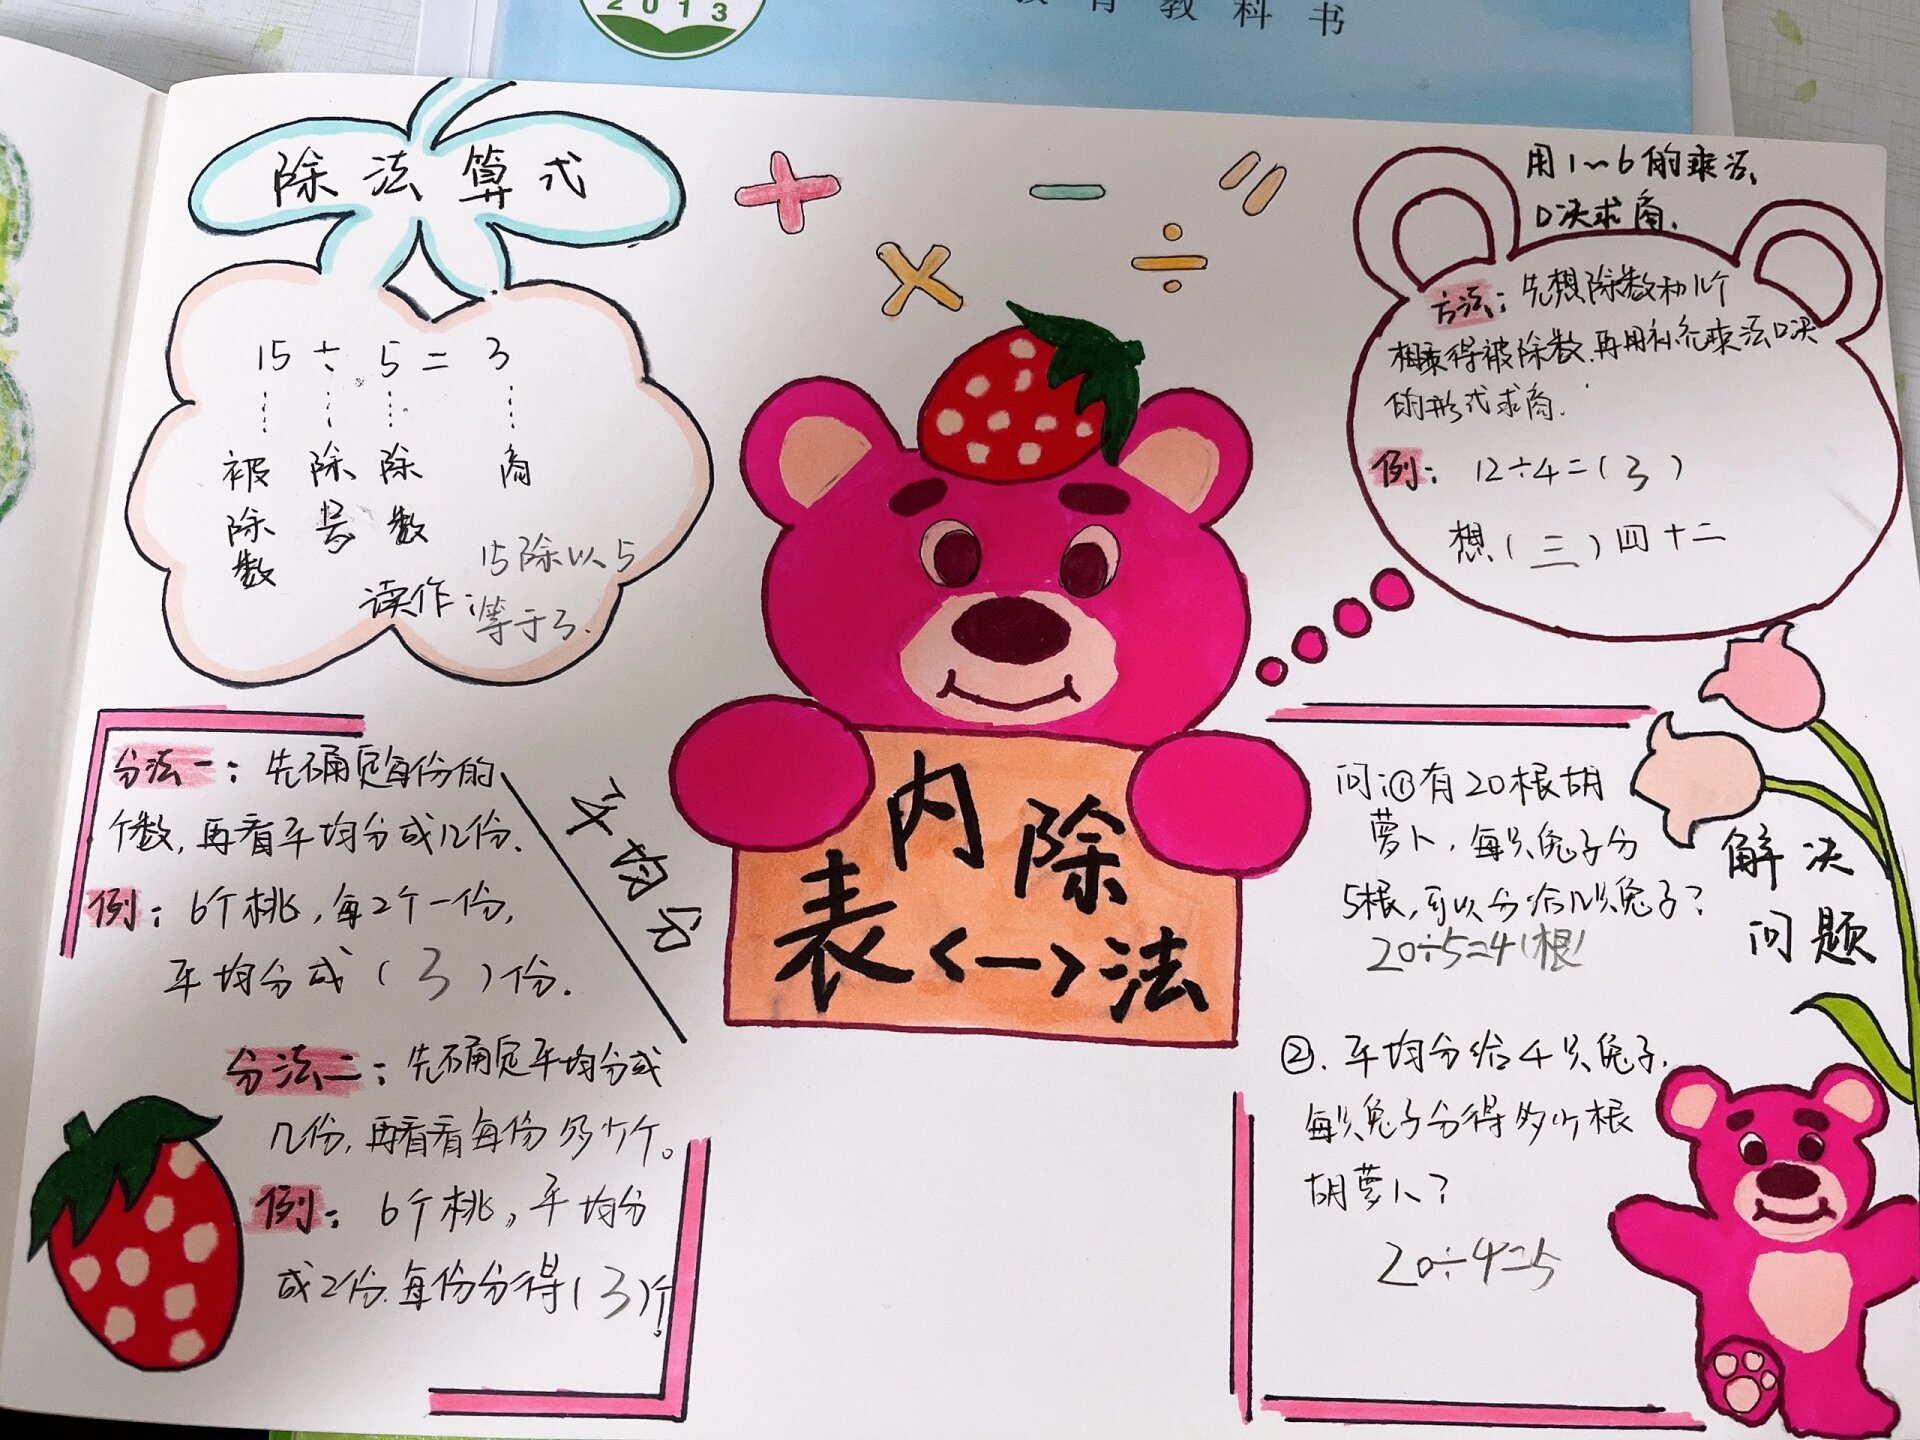 2013
教科书
除法算式
15 ÷ 5 = 3
被除数
除号
除数
商
读作:15除以5
等于3.
用1~6的乘法
口决求商.
方法:先想除数和几个
相乘得被除数.再用补充乘法口决
的形式求商.
例:12÷4=(3)
想(三)四十二
表内除法
<一>
平均分
分法一:先确定每份的
个数,再看平均分成几份.
例:6个桃,每2个一份,
平均分成(3)份.
分法二:先确定平均分成
几份,再看看每份多少个。
例:6个桃,平均分
成2份.每份分得(3)个
解决
问题
问:①有20根胡
萝卜,每只兔子分
5根,可以分给几只兔子?
20÷5=4(根)
②.平均分给4只兔子.
每只兔子分得多少根
胡萝卜?
20÷4=5